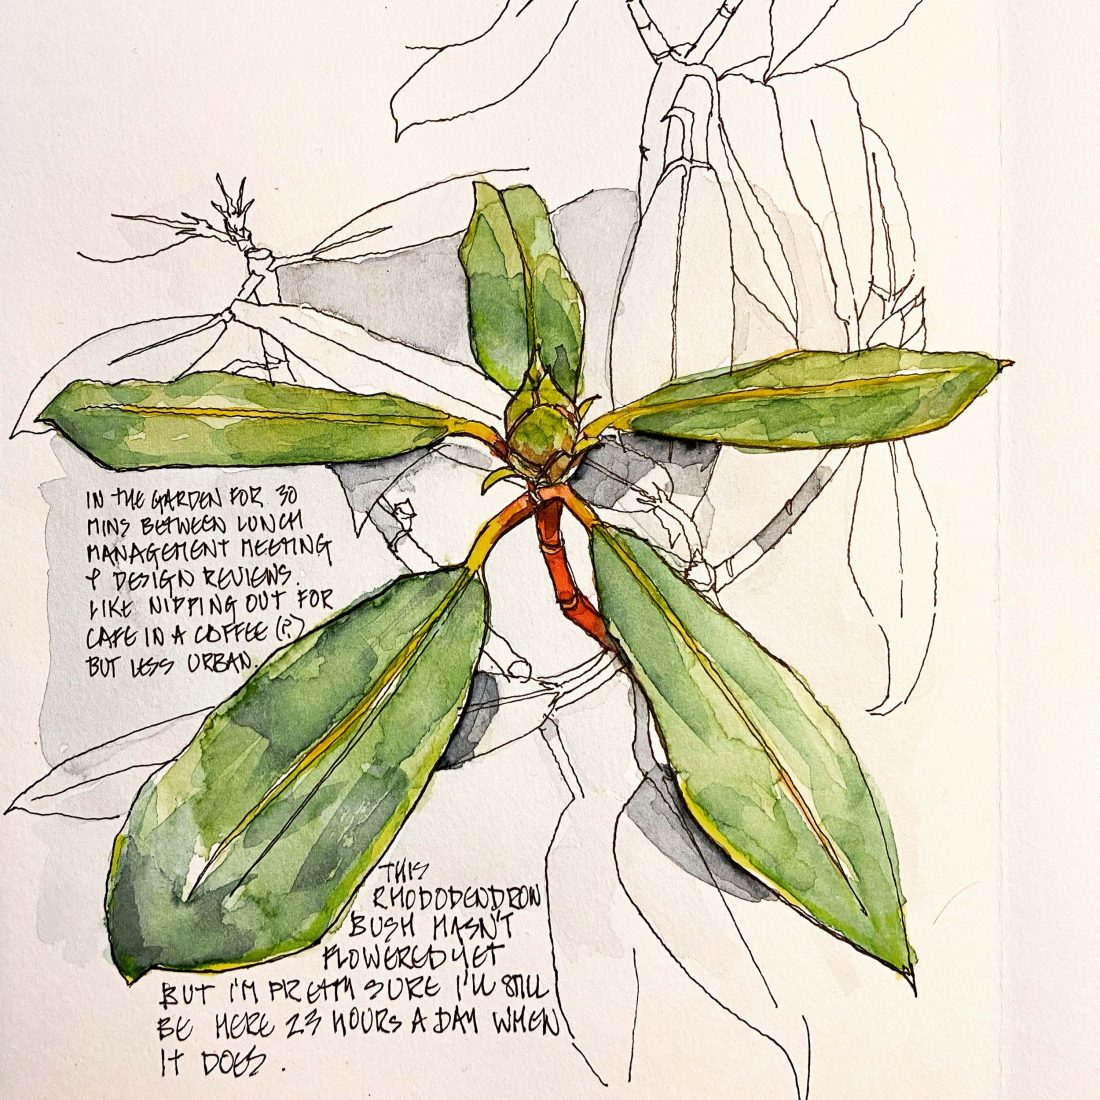 IN THE GARDEN FOR 30
MINS BETWEEN LUNCH
MANAGEMENT MEETING
& DESIGN REVIEWS.
LIKE NIPPING OUT FOR
CAFE IN A COFFEE (?)
BUT LESS URBAN.
THIS
RHODODENDRON
BUSH HASN'T
FLOWERED YET
BUT I'M PRETTY SURE I'LL STILL
BE HERE 23 HOURS A DAY WHEN
IT DOES.